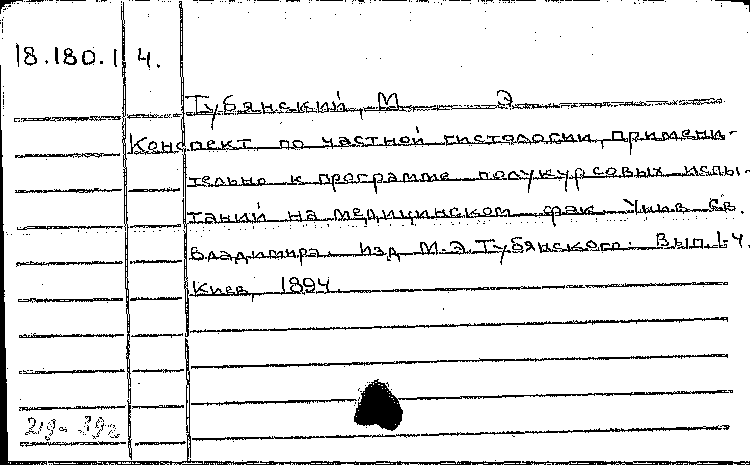 18.180.1 4.
Тубянский, М Э
Конспект по частной гистологии, примени-
тельно к программе полукурсовых испы-
таний на медицинском фак. Унив. Св.
Владимира. Изд М.Э.Тубянского. Вып. 1-4.
Киев, 1894.
219-39г